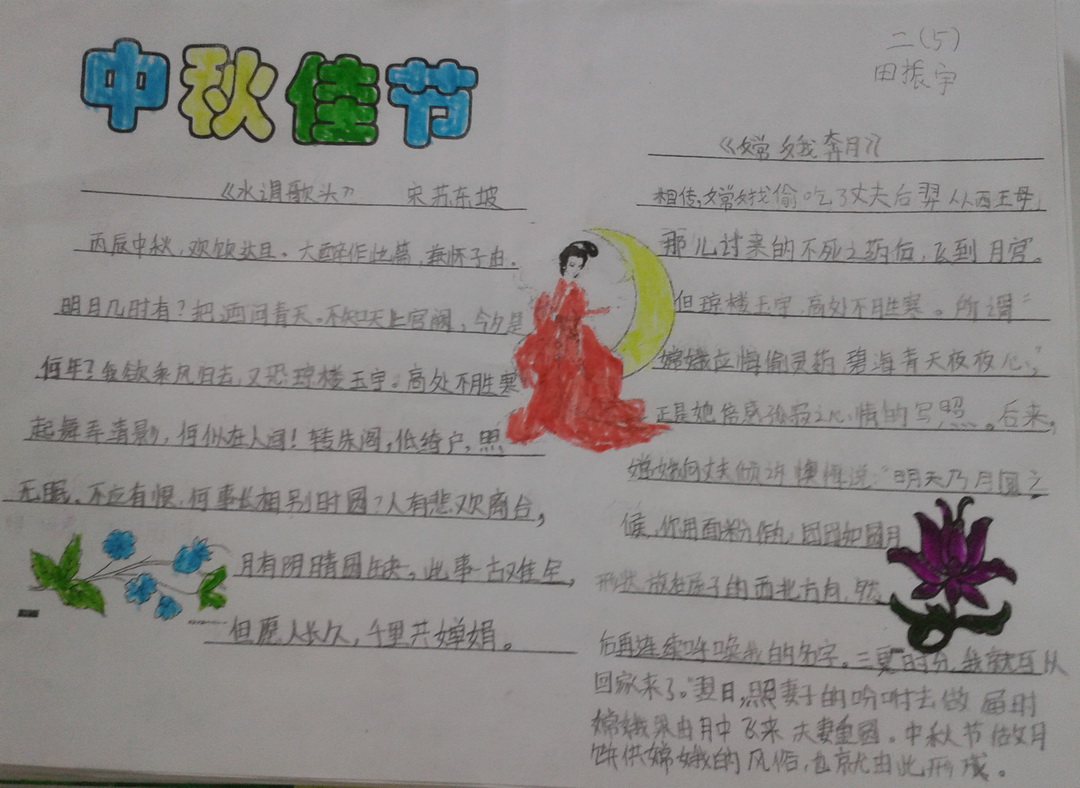 中秋佳节
二(5)
田振宇
《水调歌头》 宋苏东坡
丙辰中秋，欢饮达旦。大醉作此篇，兼怀子由。
明月几时有？把酒问青天。不知天上宫阙，今夕是
何年？我欲乘风归去，又恐琼楼玉宇。高处不胜寒
起舞弄清影，何似在人间！转朱阁，低绮户，照
无眠。不应有恨，何事长相别时圆？人有悲欢离合，
月有阴晴圆缺，此事古难全，
但愿人长久，千里共婵娟。
《嫦娥奔月》
相传，嫦娥偷吃了丈夫后羿从西王母
那儿讨来的不死之药后，飞到月宫。
但琼楼玉宇，高处不胜寒。所谓“
嫦娥应悔偷灵药，碧海青天夜夜心”，
正是她倍感孤寂之心情的写照。后来，
嫦娥向丈夫倾诉懊悔说：“明天乃月圆之
候，你用面粉作丸，团团如圆月
形状，放在屋子的西北方向，然
后再连续呼唤我的名字。三更时分，我就可从
回家来了。”翌日，照妻子的吩咐去做 届时
嫦娥果由月中飞来 夫妻重圆。中秋节做月
饼供嫦娥的风俗，也就由此形成。